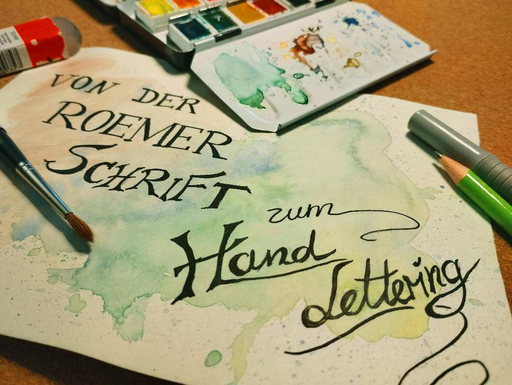 VON DER
ROEMER
SCHRIFT
zum
Hand
Lettering